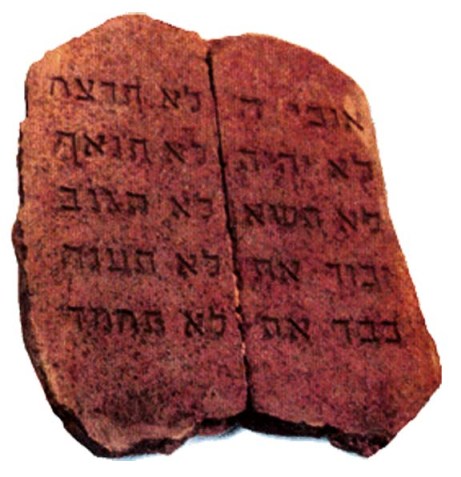 אנכי ה
לא יהיה
לא תשא
זכור את
כבד את
לא תרצח
לא תנאף
לא תגנב
לא תענה
לא תחמד